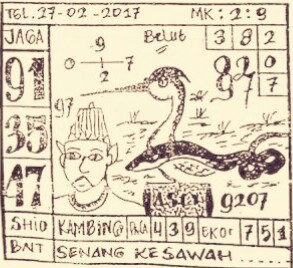 TGL. 27-02-2017 MK: 2:9
JAGA 9 Belut 3 8 2
0 2 7 0
91 97 7
35
47 ASLI 9207
SHIO KAMBING 4 3 9 EKOR 7 5 1
BNT SENANG KESAWAH